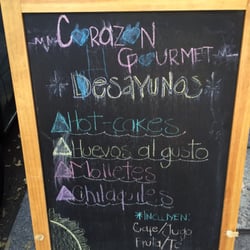 Corazón
Gourmet
*Desayunos*
Hot-cakes
Huevos al gusto
Molletes
Chilaquiles
*Incluyen:
Cafe/Jugo
Fruta/Té